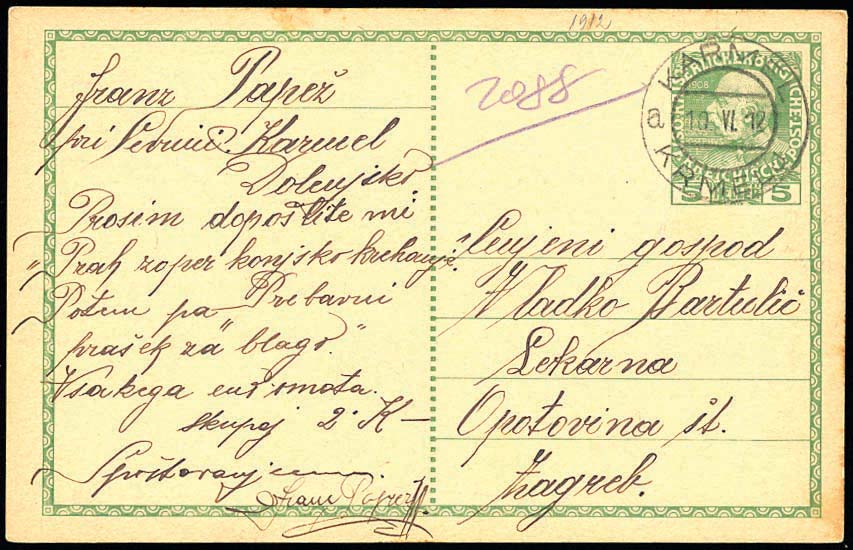 1912
Franz Papež
pri Karmel
Dolenjsko
Prosim dopošlite mi
"Prah zoper konjsko krehanje"
Potem pa Prebavni
prašek za "blago"
Vsakega en omota.
skupej 2 K—
Spoštovanjem
Franz Papež
2088
KARMEL
a 10. VI. 12
KARMEL
1908
5 5
Cenjeni gospod
Vladko Bartulić
Lekarna
Opatovina št.
Zagreb.